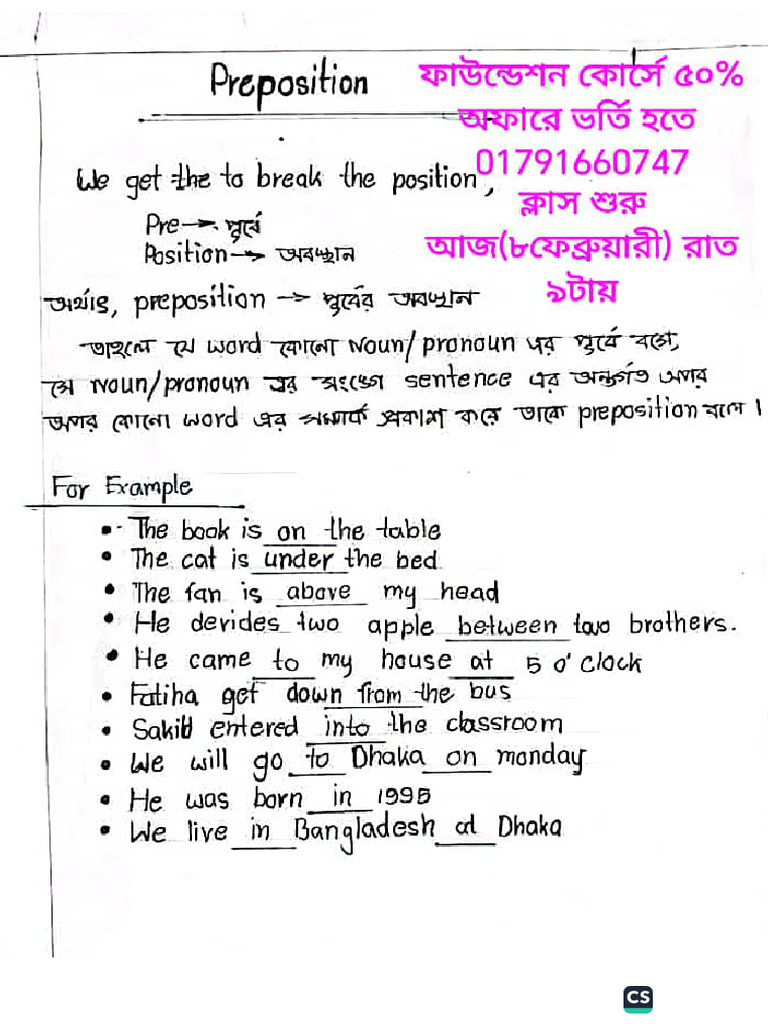 Preposition
ফাউন্ডেশন কোর্সে ৫০%
অফারে ভর্তি হতে
01791660747
ক্লাস শুরু
আজ(৮ফেব্রুয়ারী) রাত
৯টায়
We get the to break the position,
Pre → পূর্বে
Position → অবস্থান
অর্থাৎ, preposition → পূর্বের অবস্থান
তাহলে যে word কোনো Noun/pronoun এর পূর্বে বসে,
সে Noun/pronoun এর সংঙ্গে sentence এর অন্তর্গত অপর
অপর কোনো word এর সম্পর্ক প্রকাশ করে তাকে preposition বলে।
For Example
• The book is on the table
• The cat is under the bed
• The fan is above my head
• He devides two apple between two brothers.
• He came to my house at 5 o'clock
• Fatiha get down from the bus
• Sakib entered into the classroom
• We will go to Dhaka on monday
• He was born in 1995
• We live in Bangladesh at Dhaka
CS